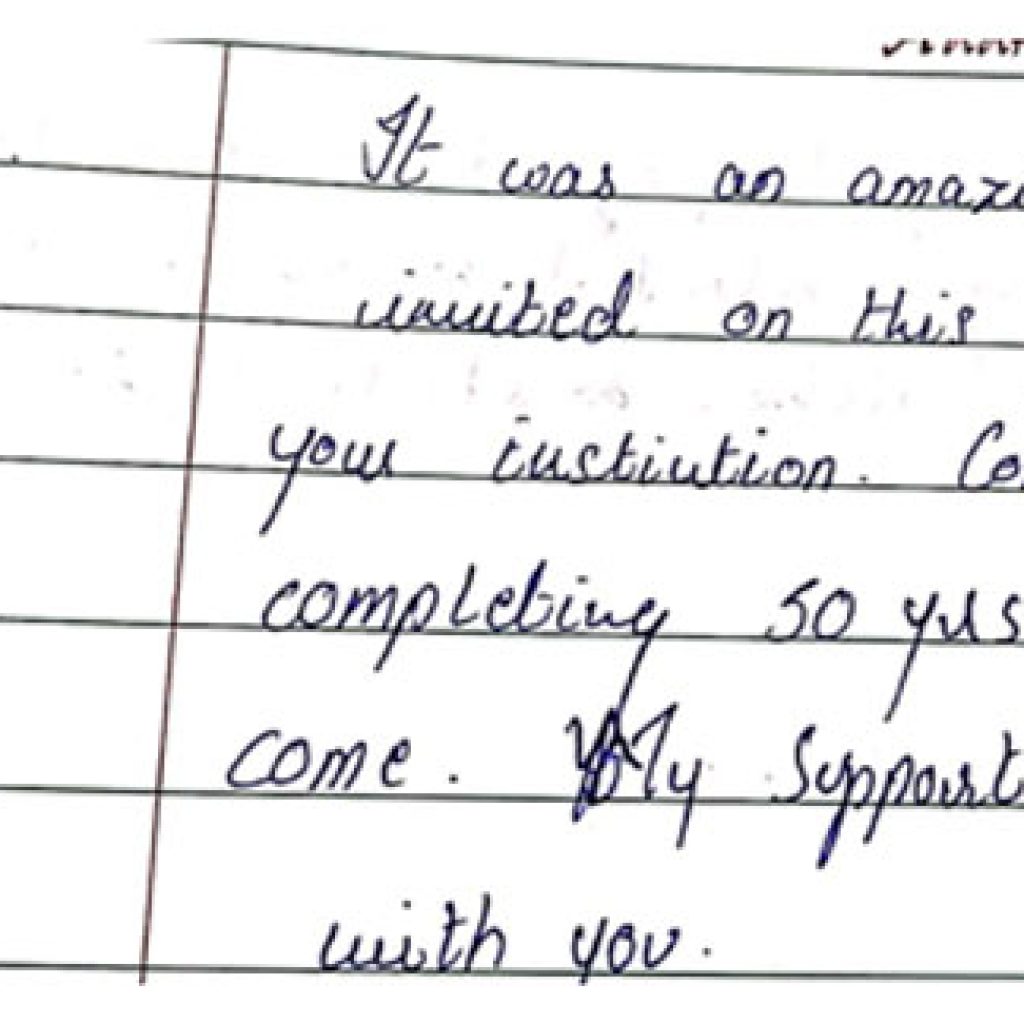 It was an amaz
invited on this
your instiution. Co
completing 50 yrs
come. My Support
with you.